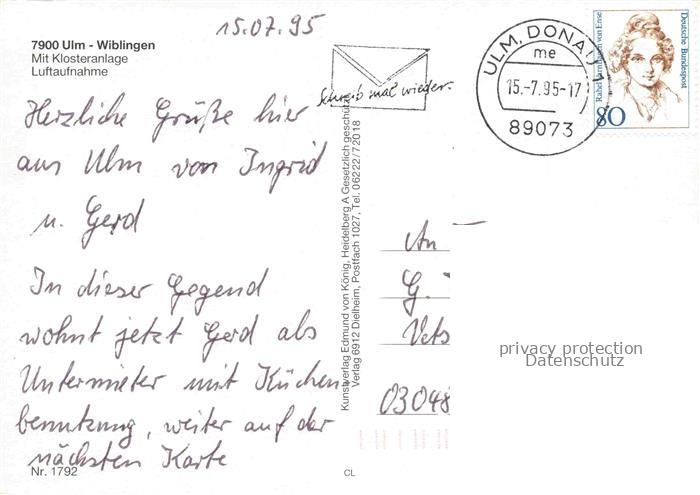 15.07.95
7900 Ulm - Wiblingen
Mit Klosteranlage
Luftaufnahme
Herzliche Grüße hier
aus Ulm von Ingrid
u. Gerd
In dieser Gegend
wohnt jetzt Gerd als
Untermieter mit Küchen
benutzung, weiter auf der
nächsten Karte
Nr. 1792
Schreib mal wieder.
ULM, DONAU 1
me
15.-7.95-17
89073
Rahel Varnhagen von Ense
Deutsche Bundespost
80
Kunstverlag Edmund von König, Heidelberg A Gesetzlich geschützt
Verlag 6912 Dielheim, Postfach 1027, Tel. 06222/72018
An
G.
Vets
03048
privacy protection
Datenschutz
CL